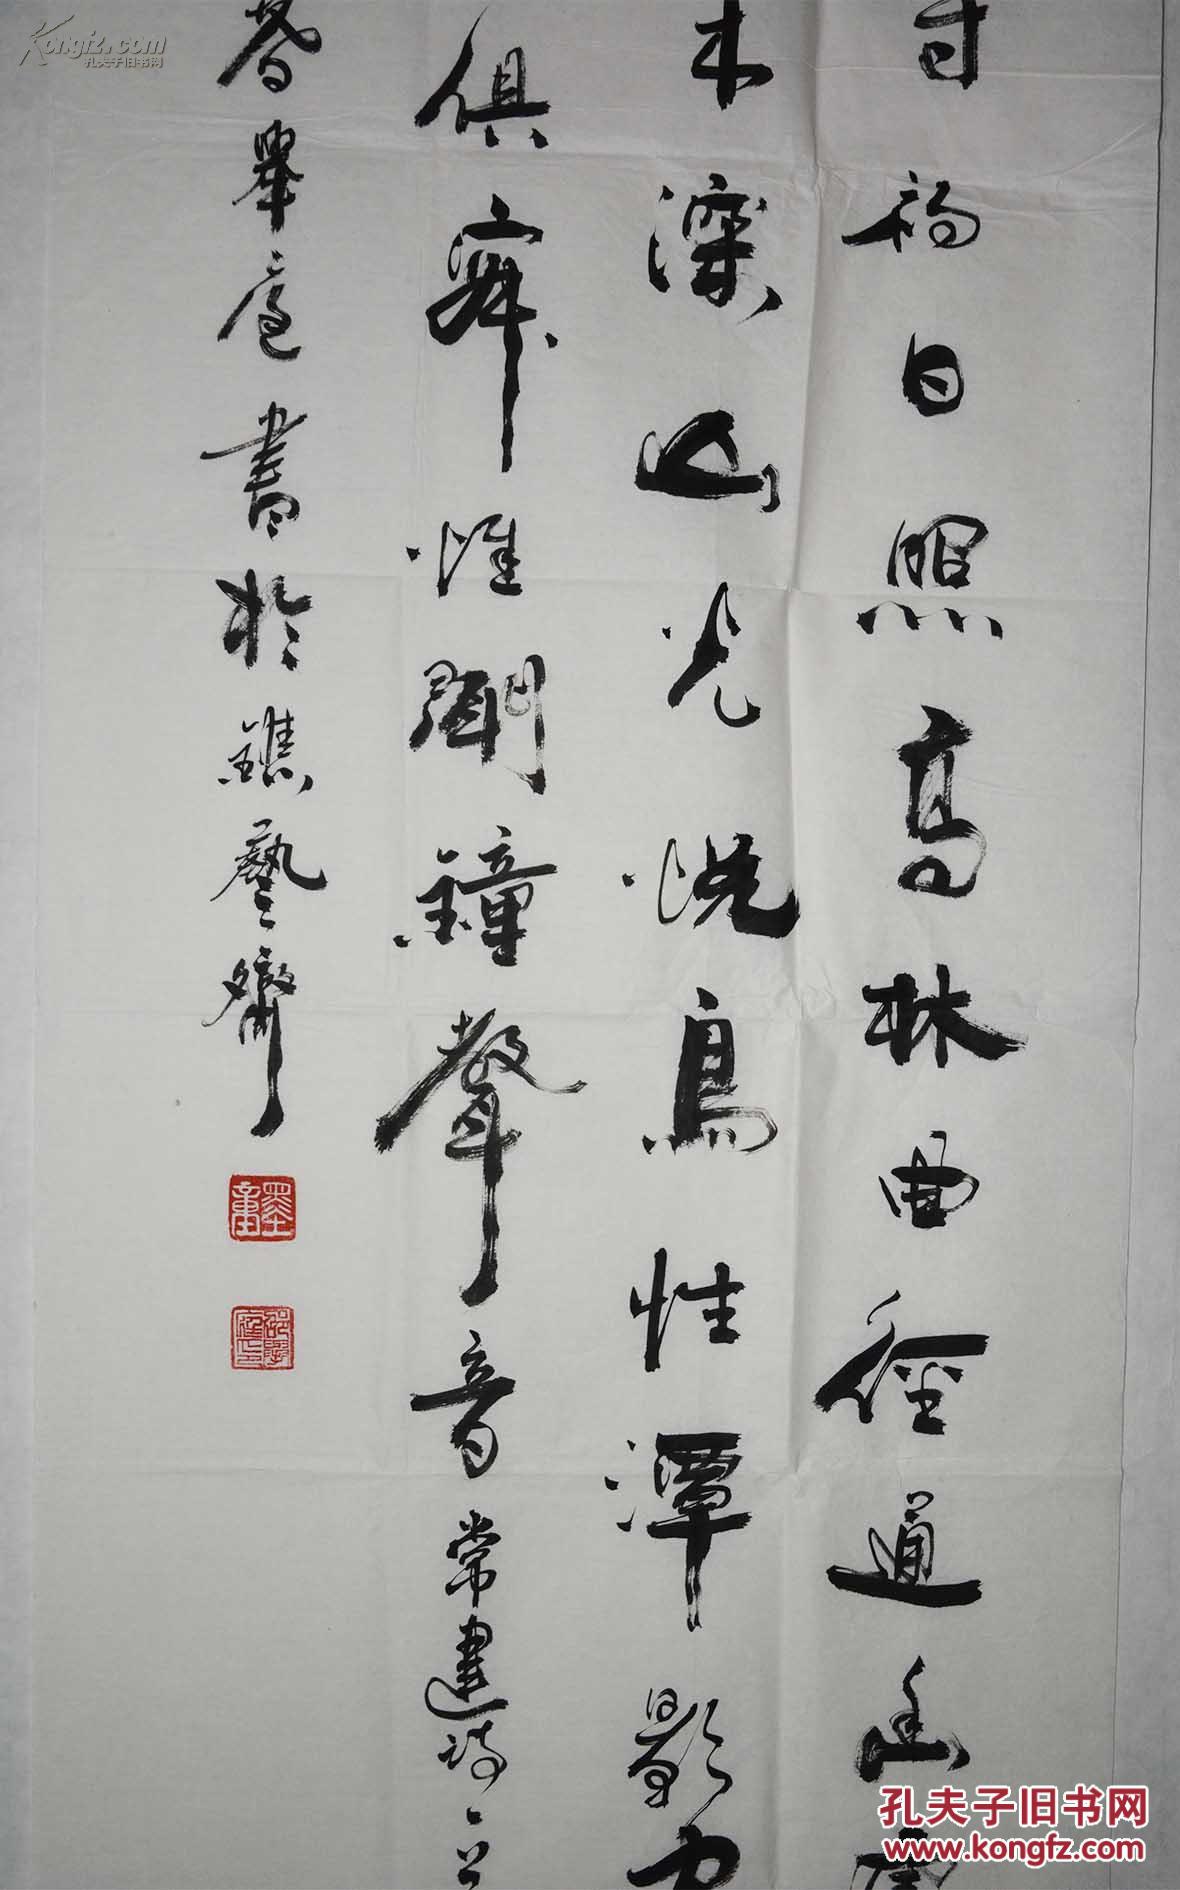 寺初日照高林曲徑通幽處
木深山光悦鳥性潭影空
俱寂惟聞鐘聲音常建詩一
書於 藝齋
墨童
Kongfz.com
孔夫子旧书网
孔夫子旧书网
www.kongfz.com